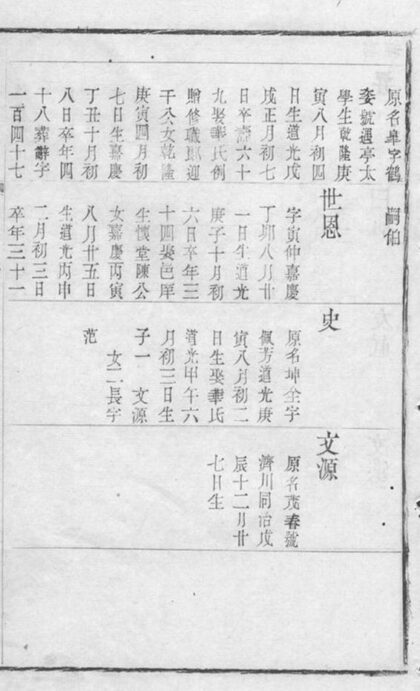 原名阜字鶴
委號遇亭太
學生乾隆庚
寅八月初四
日生道光戊
戌正月初七
日卒壽六十
九娶華氏例
贈修職郎迎
干公女乾隆
庚寅四月初
七日生嘉慶
丁丑十月初
八日卒年四
十八葬辭字
一百四十七
嗣伯
世恩
字寅仲嘉慶
丁卯八月廿
一日生道光
庚子十月初
六日卒年三
十四娶邑庠
生懷堂陳公
女嘉慶丙寅
八月廿五日
生道光丙申
二月初三日
卒年三十一
史
原名坤全字
佩芳道光庚
寅八月初二
日生娶華氏
道光甲午六
月初三日生
子一 文源
女二長字
范
文源
原名茂春號
濟川同治戊
辰十二月廿
七日生